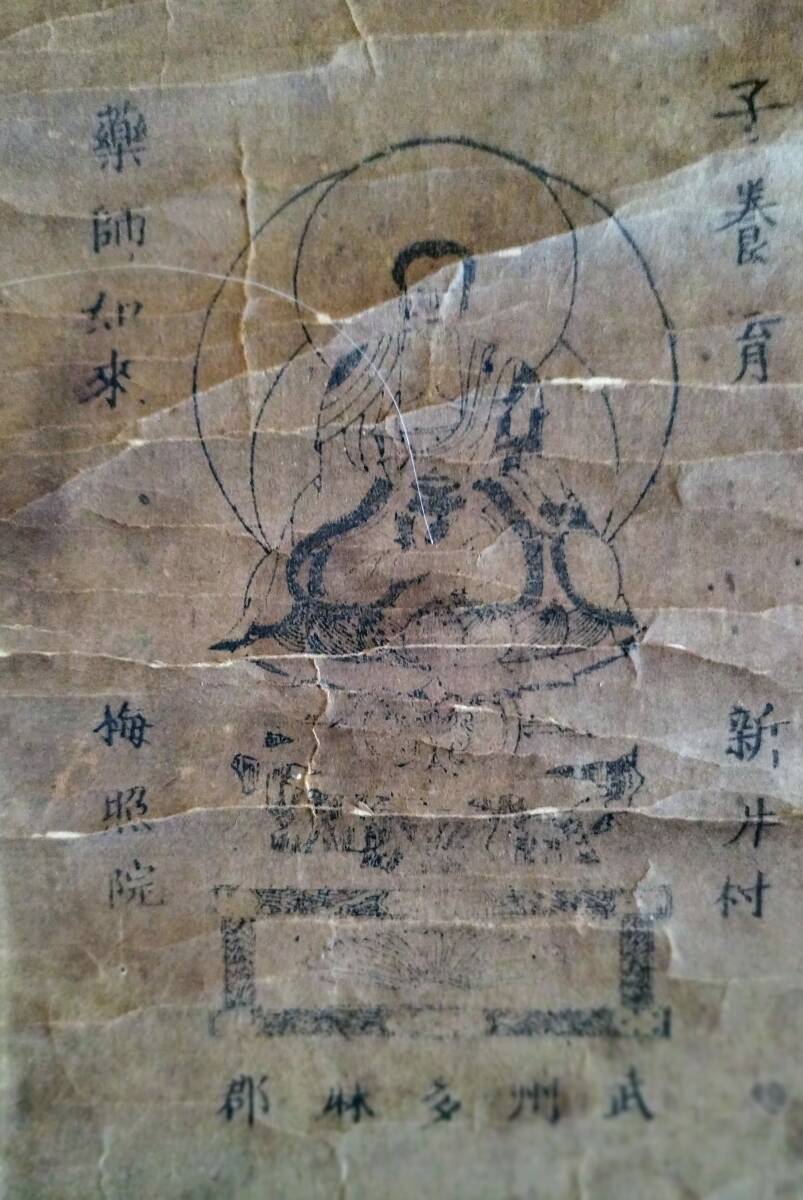 子養育
藥師如來
武州多麻郡
新井村
梅照院